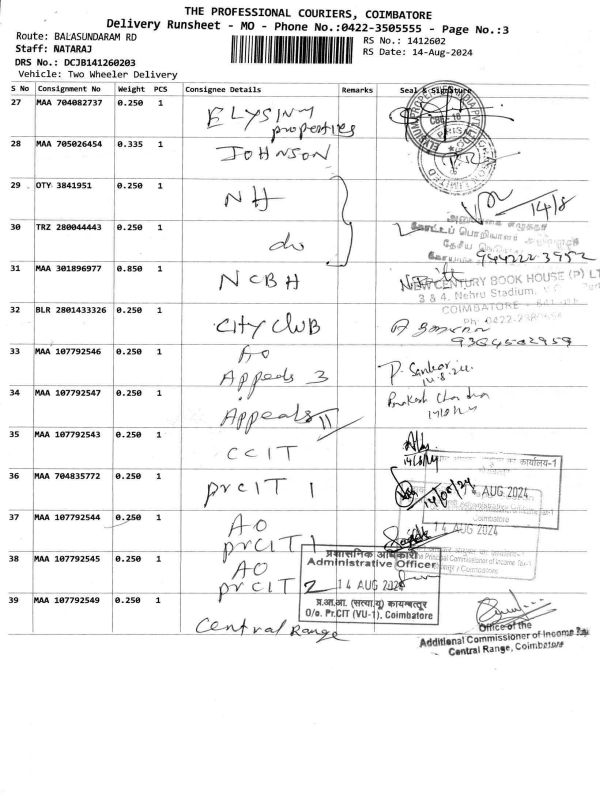 THE PROFESSIONAL COURIERS, COIMBATORE
Delivery Runsheet - MO - Phone No.:0422-3505555 - Page No.:3
Route: BALASUNDARAM RD
RS No.: 1412602
Staff: NATARAJ
RS Date: 14-Aug-2024
DRS No.: DCJB141260203
Vehicle: Two Wheeler Delivery
S No Consignment No Weight PCS Consignee Details Remarks Seal & Signature
27 MAA 704082737 0.250 1 ELYSIUM
properties
28 MAA 705026454 0.335 1 JOHNSON
29 OTY 3841951 0.250 1 NH
14/8
30 TRZ 280044443 0.250 1 do
கோட்டப் பொறியாளர்
9442223952
31 MAA 301896977 0.850 1 NCBH
NEW CENTURY BOOK HOUSE (P) LT
3 & 4, Nehru Stadium,
COIMBATORE
32 BLR 2801433326 0.250 1 CITY CLUB
33 MAA 107792546 0.250 1 AO
Appeals 3
P. Sankar
14.8.24
34 MAA 107792547 0.250 1 Appeals 11
Prakash Chandra
14/8/24
35 MAA 107792543 0.250 1 CCIT
14/8/24
कार्यालय-1
36 MAA 704835772 0.250 1 prCIT 1
14/08/24
AUG 2024
Coimbatore
37 MAA 107792544 0.250 1 AO
prCIT 1
14 AUG 2024
Principal Commissioner of Income Tax-1
Coimbatore
38 MAA 107792545 0.250 1 AO
prCIT 2
प्रशासनिक अधिकारी
Administrative Officer
14 AUG 2024
प्र.आ.आ. (सत्या.यू) कायम्बत्तूर
O/o. Pr.CIT (VU-1), Coimbatore
39 MAA 107792549 0.250 1 Central Range
Office of the
Additional Commissioner of Income Tax
Central Range, Coimbatore